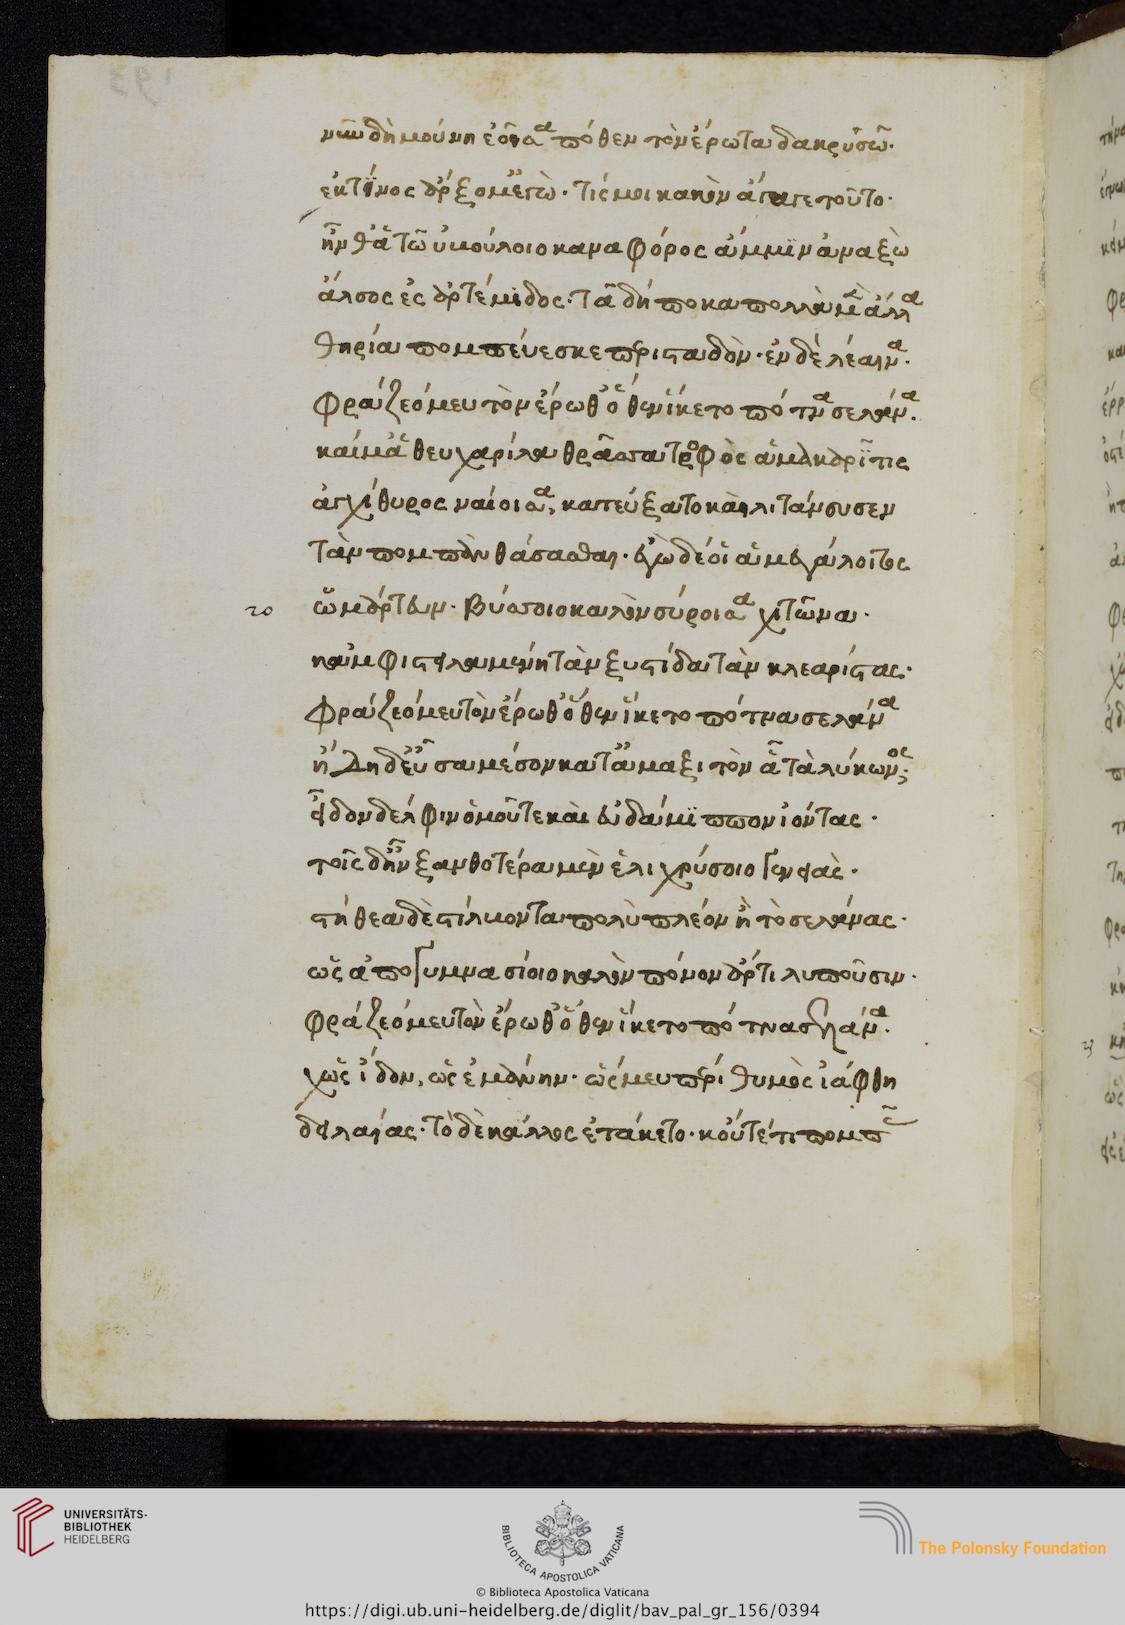 νῦν δὴ μούνη ἐοῖσα πόθεν τὸν ἔρωτα δακρύσω.
ἐκ τίνος ἄρξομ' ἐγὼ. τίς μοι κακὸν ἄγαγε τοῦτο.
ἦνθ' ἁ τῶ ὐμούλοιο καναφόρος ἄμμιν ἀναξὼ
ἄλσος ἐς ἀρτέμιδος. τᾶ δή ποκα πολλὰ μὲν ἄλλα
θηρία πομπεύεσκε περισταδὸν. ἐν δὲ λέαινα.
φράζεό μευ τὸν ἔρωθ' ὅθεν ἵκετο πότνα σελάνα.
καί μ' ἁ θευχαρίλα θρᾶσσα τροφὸς ἁ μακαρῖτις
ἀγχίθυρος ναίοισα, κατεύξατο καὶ λιτάνευσεν
τὰν πομπὰν θάσασθαι. ἐγὼ δέ οἱ ἁ μεγάλοιτος
20 ὡμάρτευν. βύσσοιο καλὸν σύροισα χιτῶνα.
κἀμφιστειλαμένη τὰν ξυστίδα τὰν κλεαρίστας.
φράζεό μευ τὸν ἔρωθ' ὅθεν ἵκετο πότνα σελάνα
ἤδη δ' εὖσα μέσον κατ' ἄμαξιτὸν ἇ τὰ λύκωνος;
εἶδον δέλφιν ὁμοῦ τε καὶ εὐδάμιππον ἰόντας.
τοῖς δ' ἦν ξανθοτέρα μὲν ἑλιχρύσοιο γενειὰς.
στήθεα δὲ στίλβοντα πολὺ πλέον ἢ τὸ σελάνας.
ὡς ἀπὸ γυμνασίοιο καλὸν πόνον ἄρτι λιποῦσιν.
φράζεό μευ τὸν ἔρωθ' ὅθεν ἵκετο πότνα σελάνα.
χὡς ἴδον, ὣς ἐμάνην. ὥς μευ περὶ θυμὸς ἰάφθη
δειλαίας. τὸ δὲ κάλλος ἐτάκετο. κοὔτέ τι πομπῆς
UNIVERSITÄTS-
BIBLIOTHEK
HEIDELBERG
BIBLIOTECA APOSTOLICA VATICANA
The Polonsky Foundation
© Biblioteca Apostolica Vaticana
https://digi.ub.uni-heidelberg.de/diglit/bav_pal_gr_156/0394